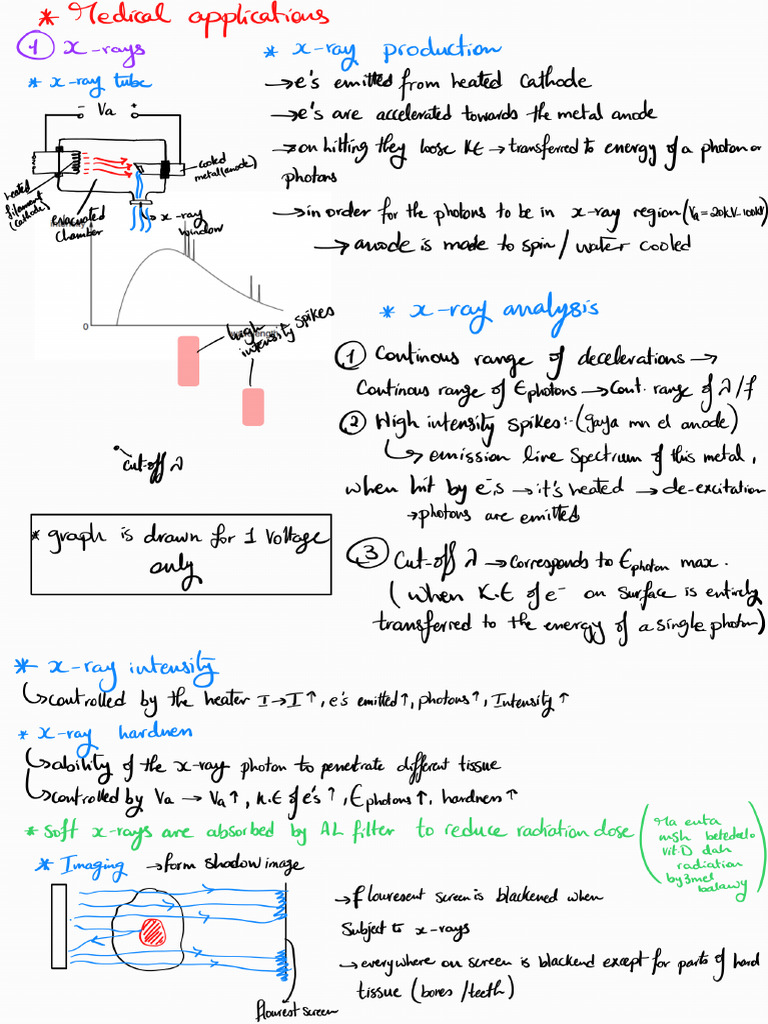 * Medical applications
① x-rays
* x-ray tube
- Va +
heated filament (cathode)
evacuated chamber
cooled metal (anode)
x-ray window
* x-ray production
→e's emitted from heated cathode
→e's are accelerated towards the metal anode
→on hitting they loose KE → transferred to energy of a photon or
photons
→in order for the photons to be in x-ray region (Va = 20kV-100kV)
→ anode is made to spin / water cooled
0
high intensity spikes
cut-off λ
* graph is drawn for 1 voltage
only
* x-ray analysis
① Continous range of decelerations →
Continous range of Ephotons → Cont. range of λ/f
② High intensity spikes:- (gaya mn el anode)
↳ emission line spectrum of this metal,
when hit by e-,s → it's heated → de-excitation
→photons are emitted
③ Cut-off λ → corresponds to Ephoton max.
(when K.E of e- on surface is entirely
transferred to the energy of a single photon)
* x-ray intensity
↳controlled by the heater I → I↑, e's emitted↑, photons↑, Intensity↑
* x-ray hardness
↳ability of the x-ray photon to penetrate different tissue
↳controlled by Va → Va↑, K.E of e's↑, Ephotons↑, hardness↑
* Soft x-rays are absorbed by AL filter to reduce radiation dose
(Ma enta
msh betedelo
vit.D dah
radiation
by3mel
balawy)
* Imaging → form shadow image
flourest screen
→flouresent screen is blackened when
subject to x-rays
→everywhere on screen is blackend except for parts of hard
tissue (bones/teeth)